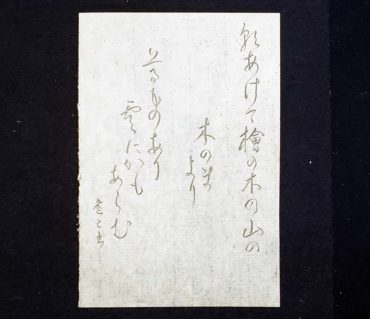 朝あけて檜の木の山の
木のま
より
るものあり
雲にかも
あらむ